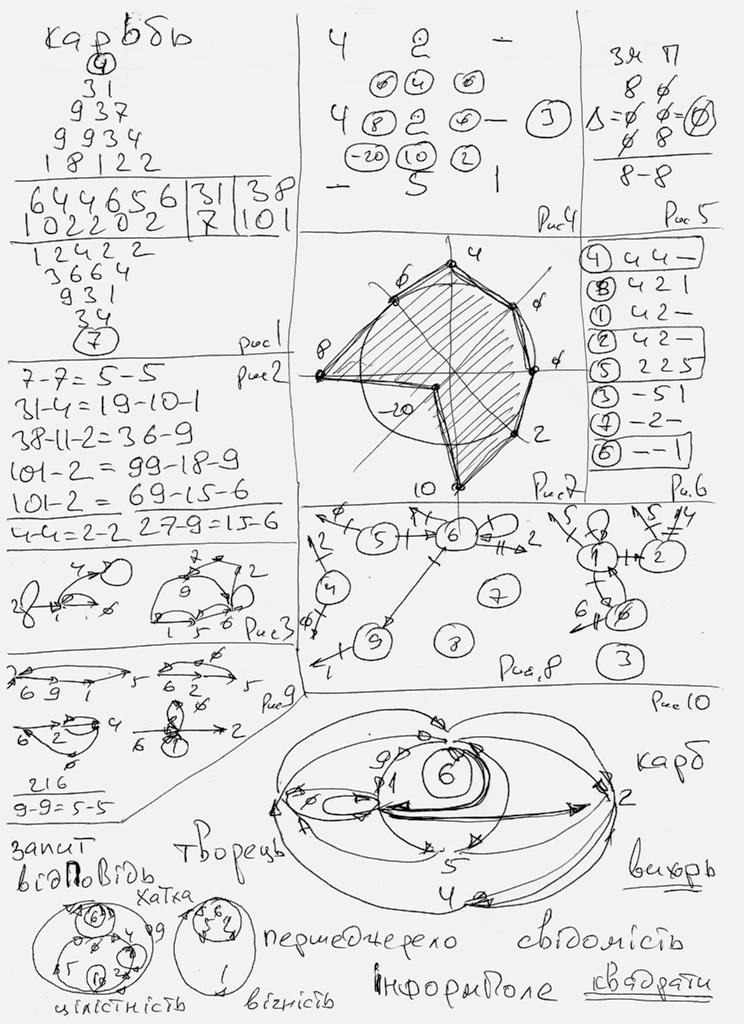 карьбь
4
3 1
9 3 7
9 9 3 4
1 8 1 2 2
6 4 4 6 5 6 | 31 | 38
1 0 2 2 0 2 | 7 | 101
1 2 4 2 2
3 6 6 4
9 3 1
3 4
7
рис1
4 2 –
ø 4 ø
4 8 2 ø – 3
-20 10 2
– 5 1
Рис4
зм п
8 ø
Δ = ø ø = ø
ø 8
8-8
Рис5
7-7=5-5
рис2
31-4=19-10-1
38-11-2=36-9
101-2=99-18-9
101-2=69-15-6
4-4=2-2 27-9=15-6
4
6
ø
8
ø
-20
2
10
Рис7
4 4 4 –
8 4 2 1
1 4 2 –
2 4 2 –
5 2 2 5
3 – 5 1
7 – 2 –
6 – – 1
Рис6
2 4 1 ø
7 2 9 1 5 6
Рис3
ø 5 1 6 2
2 4 7
ø 9 8
1
5 1 5 2 4
6 ø
3
Рис.8
6 9 1 5
ø 6 2 5
Рис9
6 2 4 ø
ø 6 2
216
9-9=5-5
Рис10
9 1 6 2
ø
7
5
4
карб
вихорь
запит
відповідь
творець
хатка
першеджерело
свідомість
інформполе
квадрати
цілістність
вічність